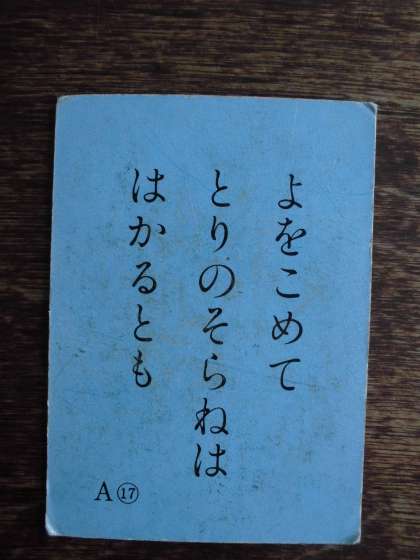 よをこめて
とりのそらねは
はかるとも
A⑰